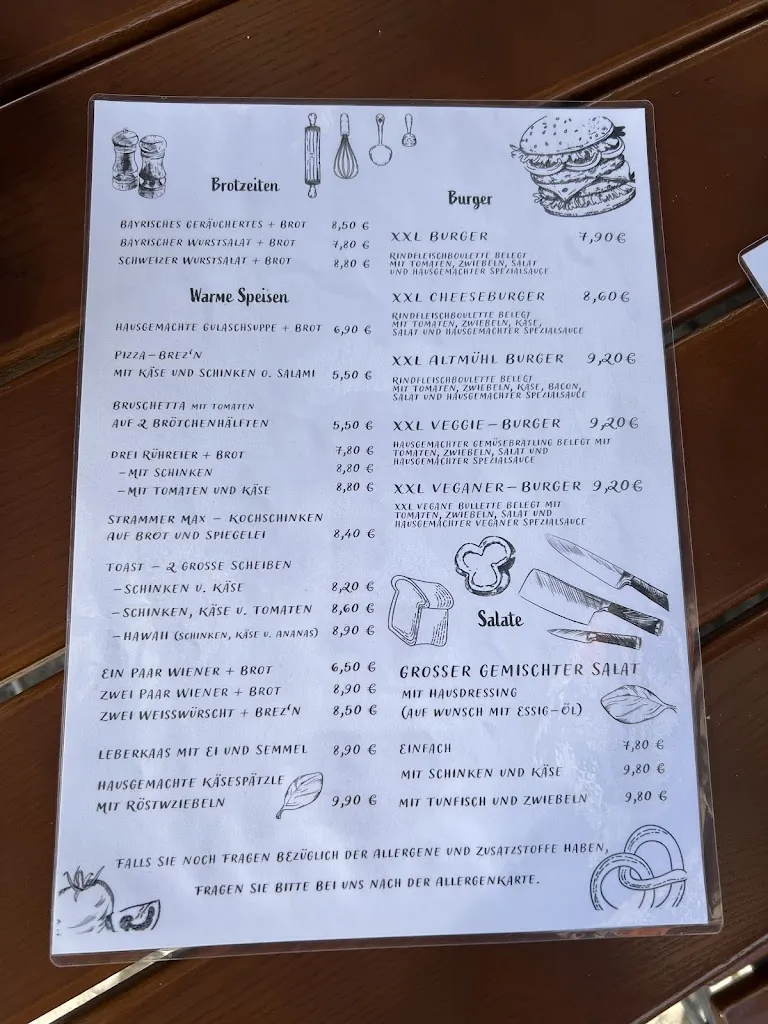 Brotzeiten
BAYRISCHES GERÄUCHERTES + BROT 8,50 €
BAYRISCHER WURSTSALAT + BROT 7,80 €
SCHWEIZER WURSTSALAT + BROT 8,80 €
Warme Speisen
HAUSGEMACHTE GULASCHSUPPE + BROT 6,90 €
PIZZA-BREZ'N
MIT KÄSE UND SCHINKEN O. SALAMI 5,50 €
BRUSCHETTA MIT TOMATEN
AUF 2 BRÖTCHENHÄLFTEN 5,50 €
DREI RÜHREIER + BROT 7,80 €
-MIT SCHINKEN 8,80 €
-MIT TOMATEN UND KÄSE 8,80 €
STRAMMER MAX - KOCHSCHINKEN
AUF BROT UND SPIEGELEI 8,40 €
TOAST - 2 GROSSE SCHEIBEN
-SCHINKEN U. KÄSE 8,20 €
-SCHINKEN, KÄSE U. TOMATEN 8,60 €
-HAWAII (SCHINKEN, KÄSE U. ANANAS) 8,90 €
EIN PAAR WIENER + BROT 6,50 €
ZWEI PAAR WIENER + BROT 8,90 €
ZWEI WEISSWÜRSCHT + BREZ'N 8,50 €
LEBERKAAS MIT EI UND SEMMEL 8,90 €
HAUSGEMACHTE KÄSESPÄTZLE
MIT RÖSTWZIEBELN 9,90 €
Burger
XXL BURGER 7,90 €
RINDFLEISCHBOULETTE BELEGT
MIT TOMATEN, ZWIEBELN, SALAT
UND HAUSGEMACHTER SPEZIALSAUCE
XXL CHEESEBURGER 8,60 €
RINDFLEISCHBOULETTE BELEGT
MIT TOMATEN, ZWIEBELN, KÄSE,
SALAT UND HAUSGEMACHTER SPEZIALSAUCE
XXL ALTMÜHL BURGER 9,20 €
RINDFLEISCHBOULETTE BELEGT
MIT TOMATEN, ZWIEBELN, KÄSE, BACON,
SALAT UND HAUSGEMACHTER SPEZIALSAUCE
XXL VEGGIE-BURGER 9,20 €
HAUSGEMACHTER GEMÜSEBRATLING BELEGT MIT
TOMATEN, ZWIEBELN, SALAT UND
HAUSGEMACHTER SPEZIALSAUCE
XXL VEGANER-BURGER 9,20 €
XXL VEGANE BULLETTE BELEGT MIT
TOMATEN, ZWIEBELN, SALAT UND
HAUSGEMACHTER VEGANER SPEZIALSAUCE
Salate
GROSSER GEMISCHTER SALAT
MIT HAUSDRESSING
(AUF WUNSCH MIT ESSIG-ÖL)
EINFACH 7,80 €
MIT SCHINKEN UND KÄSE 9,80 €
MIT TUNFISCH UND ZWIEBELN 9,80 €
FALLS SIE NOCH FRAGEN BEZÜGLICH DER ALLERGENE UND ZUSATZSTOFFE HABEN,
FRAGEN SIE BITTE BEI UNS NACH DER ALLERGENKARTE.